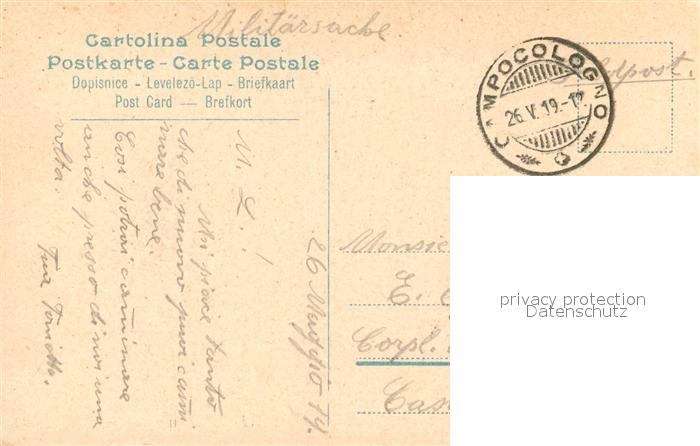 Militärsache
Cartolina Postale
Postkarte - Carte Postale
Dopisnice - Levelezö-Lap - Briefkaart
Post Card — Brefkort
CAMPOCOLOGNO
26.V.19.-12
Feldpost.
26 Maggio 19.
M. L.!
Mi piace tanto
che di nuovo puoi cami=
nare bene.
Così potrai caminare
anche presso di noi una
volta.
Tua
Monsie
E.
Corpl.
privacy protection
Datenschutz